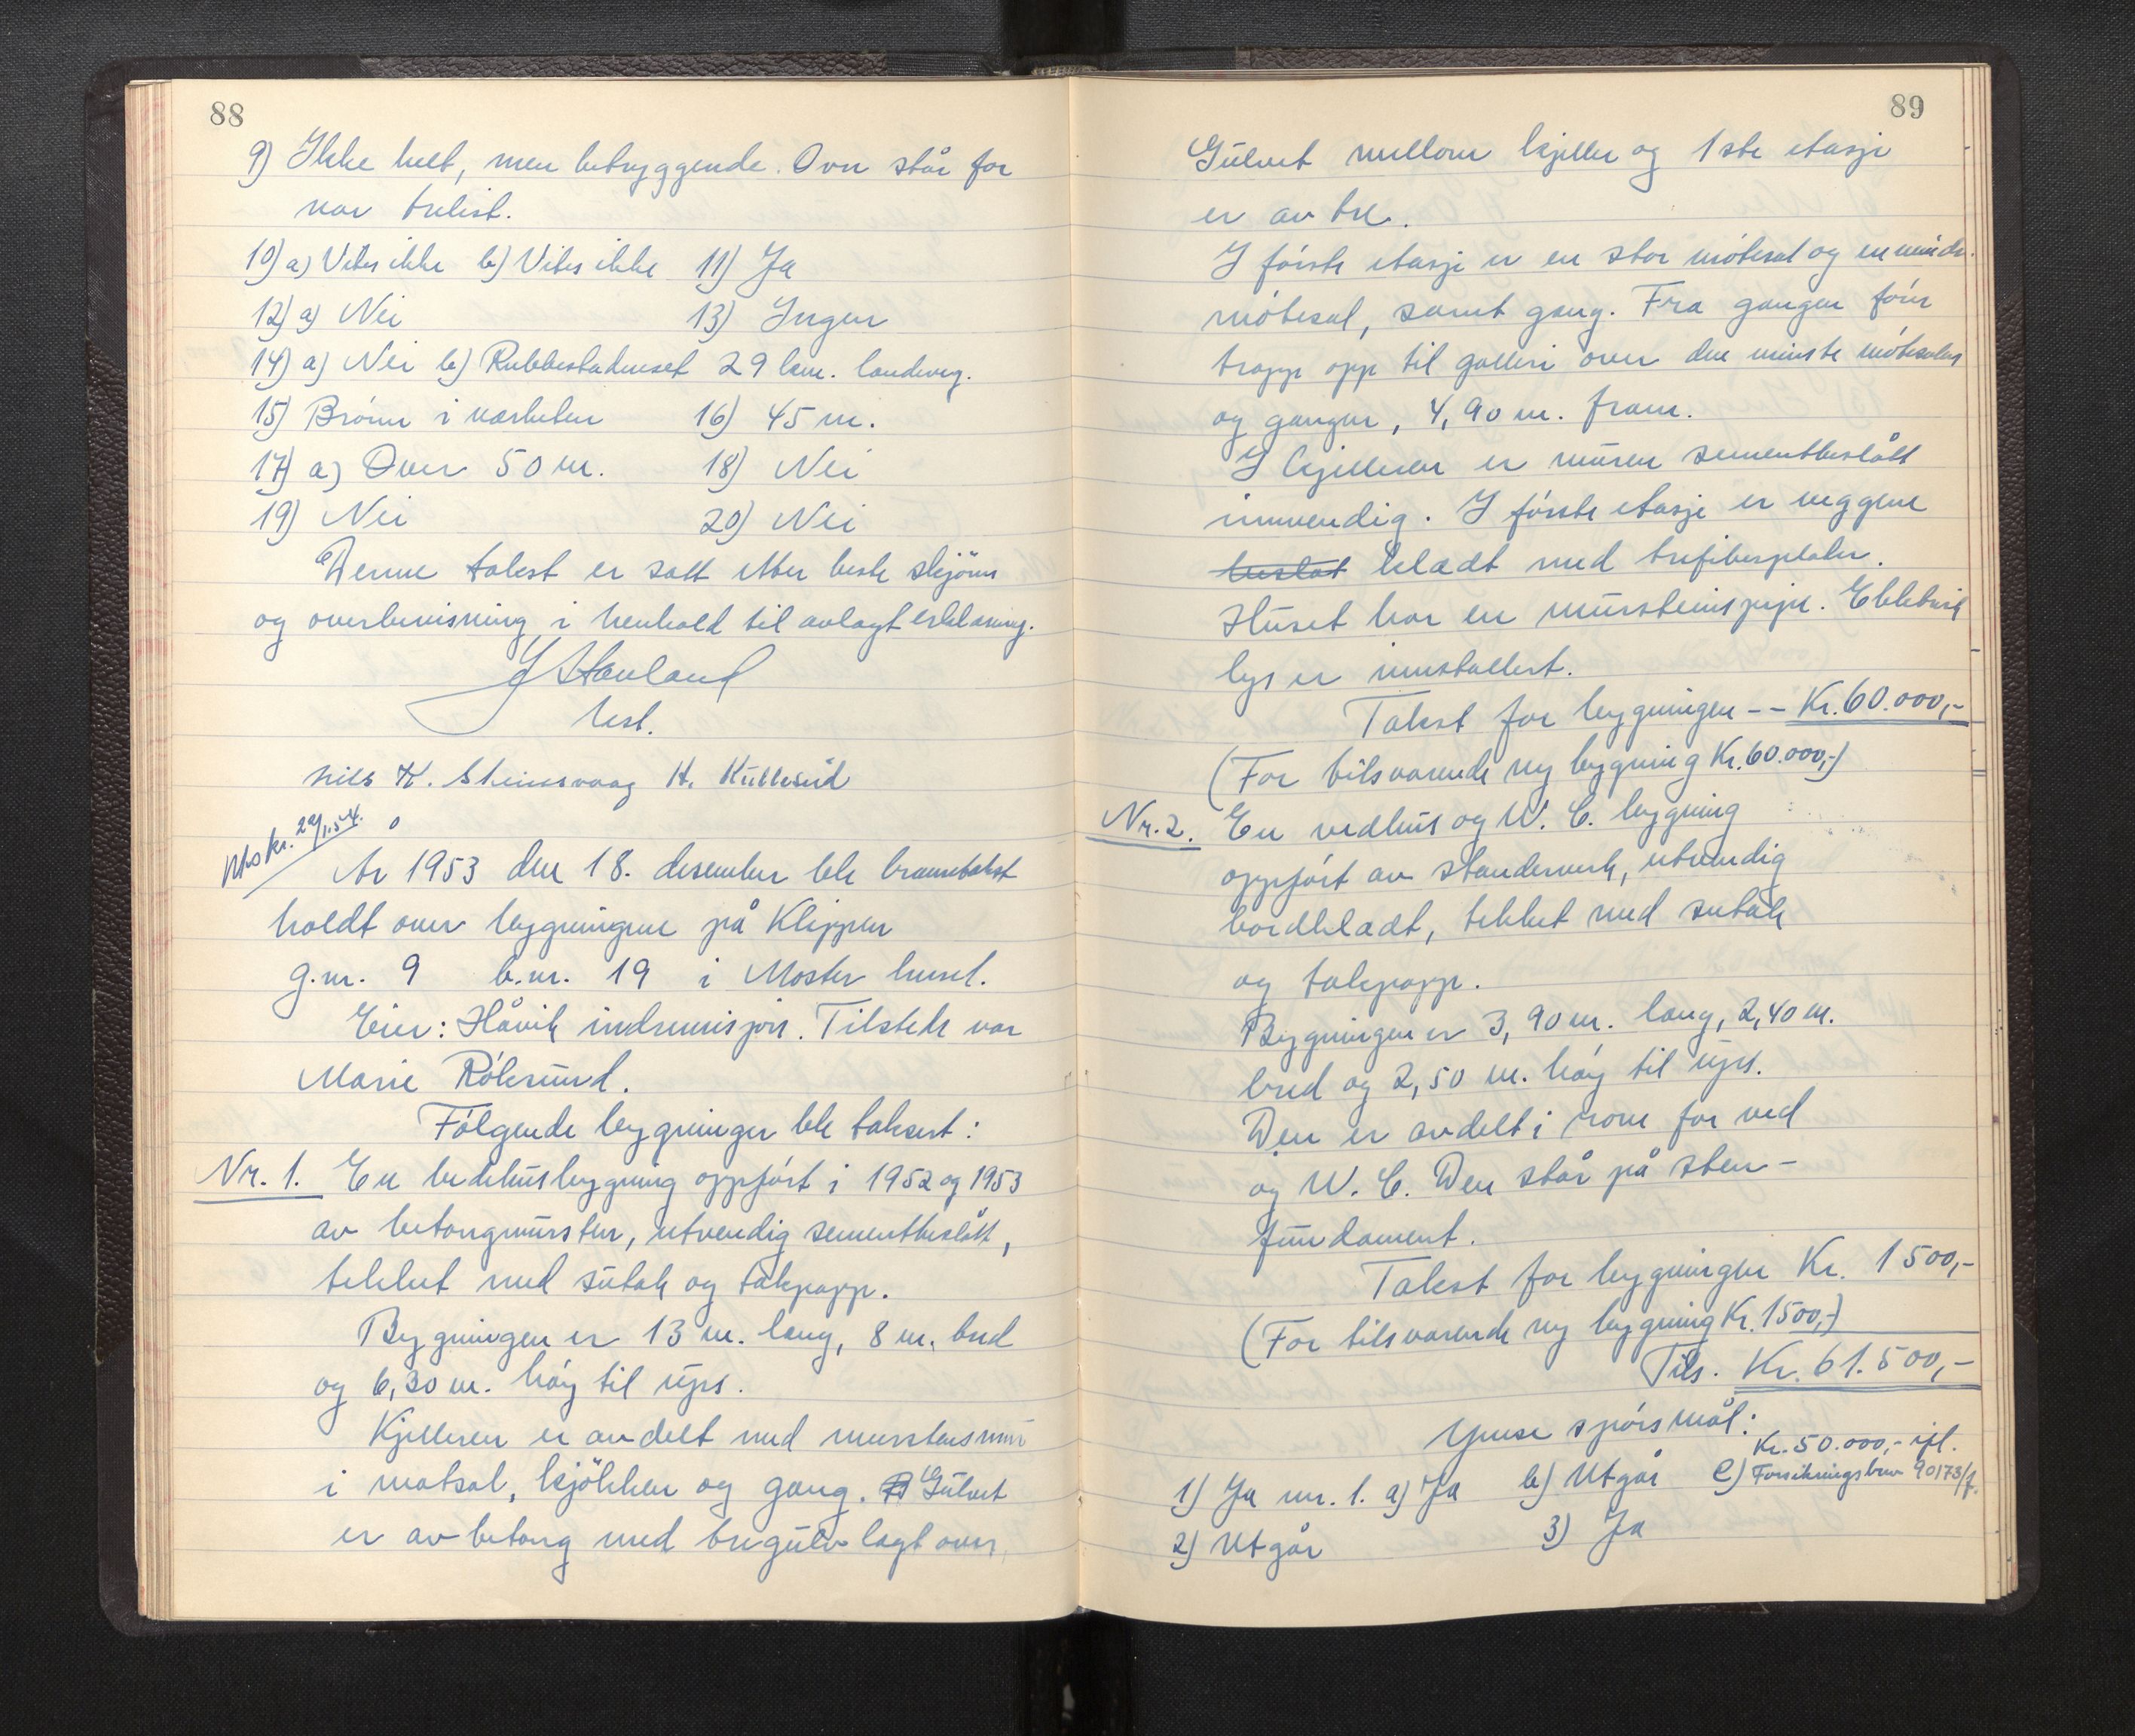 88
9) Ikke helt, men betryggende. Ovn står for
nær trelist.
10) a) Vites ikke b) Vites ikke 11) Ja
12) a) Nei 13) Ingen
14) a) Nei b) Rubbestadneset 29 km. landeveg.
15) Brönn i nærheten 16) 45 m.
17) a) Over 50 m. 18) Nei
19) Nei 20) Nei
Denne takst er satt etter beste skjönn
og overbevisning i henhold til avlagt erklæring.
J Havland
lest.
Nils K. Steinsvaag H. Kulleseid
Utskr. 29/1.54.
År 1953 den 18. desember ble branntakst
holdt over bygningene på Klippen
g.nr. 9 b.nr. 19 i Moster hered.
Eier: Håvik indremisjon. Tilstede var
Marie Röksund.
Fölgende bygninger ble taksert:
Nr. 1. En bedehusbygning oppfört i 1952 og 1953
av betongmursten, utvendig sementbeslått,
tekket med sutak og takpapp.
Bygningen er 13 m. lang, 8 m. bred
og 6,30 m. höy til ups.
Kjelleren er avdelt med murstensmur
i matsal, kjökken og gang. Gulvet
er av betong med tregulv lagt over.
89
Gulvet mellom kjeller og 1ste etasje
er av tre.
I förste etasje er en stor mötesal og en mindre
mötesal, samt gang. Fra gangen förer
trapp opp til galleri over den minste mötesalen
og gangen, 4,90 m. fram.
I kjelleren er muren sementbeslått
innvendig. I förste etasje er veggene
beslåt klædt med trefiberplater.
Huset har en mursteinspipe. Elektrisk
lys er innstallert.
Takst for bygningen -- Kr. 60.000,-
(For tilsvarende ny bygning Kr. 60.000,-)
Nr. 2. En vedhus og W. C. bygning
oppfört av standerverk, utvendig
bordklædt, tekket med sutak
og takpapp.
Bygningen er 3,90 m. lang, 2,40 m.
bred og 2,50 m. höy til ups.
Den er avdelt i rom for ved
og W. C. Den står på sten-
fundament.
Takst for bygningen Kr. 1500,-
(For tilsvarende ny bygning Kr. 1500,-)
Tils. Kr. 61.500,-
Ymse spörsmål:
Kr. 50.000,- ifl.
1) Ja nr. 1. a) Ja b) Utgår c) Forsikringsbrev 90173/f.
2) Utgår 3) Ja